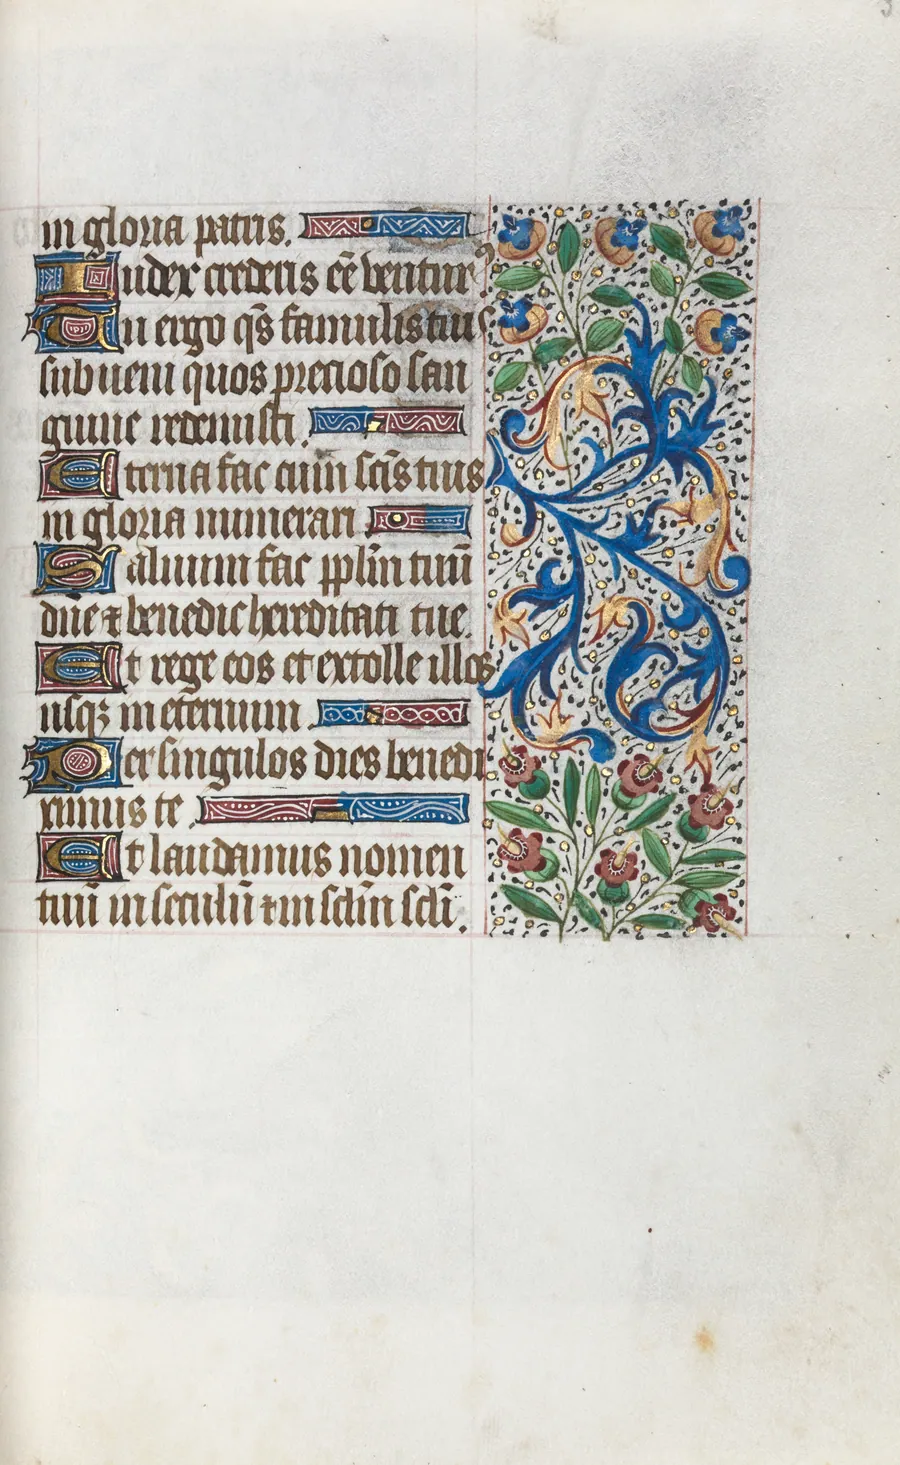 in gloria patris.
Iudex crederis eē ventur⁹.
Tu ergo qs̄ famulis tuis
subueni quos precioso san
guine redemisti.
Eterna fac cum scīs tuis
in gloria numerari.
Saluum fac pplm̄ tuū
dn̄e ⁊ benedic hereditati tue.
Et rege eos et extolle illos
usqꝫ in eternum
Per singulos dies benedi
ximus te.
Et laudamus nomen
tuū in seculū ⁊ in sclm̄ scli̅.